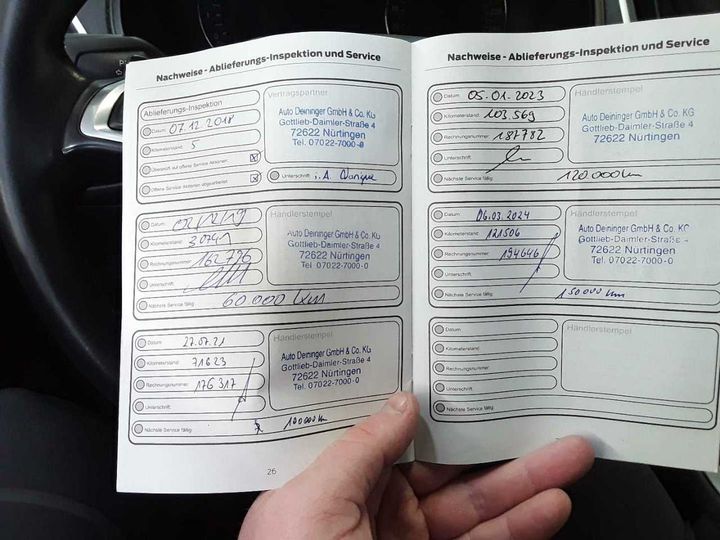 Nachweise - Ablieferungs-Inspektion und Service
Ablieferungs-Inspektion
Datum: 07.12.2018
Kilometerstand: 5
Überprüft auf offene Service Aktionen:
Offene Service Aktionen abgearbeitet:
Vertragspartner
Auto Deininger GmbH & Co. KG
Gottlieb-Daimler-Straße 4
72622 Nürtingen
Tel. 07022-7000-0
Unterschrift: i.A.
Datum:
Kilometerstand: 30741
Rechnungsnummer: 162796
Unterschrift:
Nächste Service fällig: 60 000 km
Händlerstempel
Auto Deininger GmbH & Co. KG
Gottlieb-Daimler-Straße 4
72622 Nürtingen
Tel. 07022-7000-0
Datum: 27.07.21
Kilometerstand: 71623
Rechnungsnummer: 176317
Unterschrift:
Nächste Service fällig: 100000 km
Händlerstempel
Auto Deininger GmbH & Co. KG
Gottlieb-Daimler-Straße 4
72622 Nürtingen
Tel. 07022-7000-0
26
Nachweise - Ablieferungs-Inspektion und Service
Datum: 05.01.2023
Kilometerstand: 103.569
Rechnungsnummer: 187782
Unterschrift:
Nächste Service fällig: 120.000 km
Händlerstempel
Auto Deininger GmbH & Co. KG
Gottlieb-Daimler-Straße 4
72622 Nürtingen
Tel. 07022-7000-0
Datum: 06.03.2024
Kilometerstand: 121506
Rechnungsnummer: 194646
Unterschrift:
Nächste Service fällig: 150000 km
Händlerstempel
Auto Deininger GmbH & Co. KG
Gottlieb-Daimler-Straße 4
72622 Nürtingen
Tel. 07022-7000-0
Datum:
Kilometerstand:
Rechnungsnummer:
Unterschrift:
Nächste Service fällig:
Händlerstempel